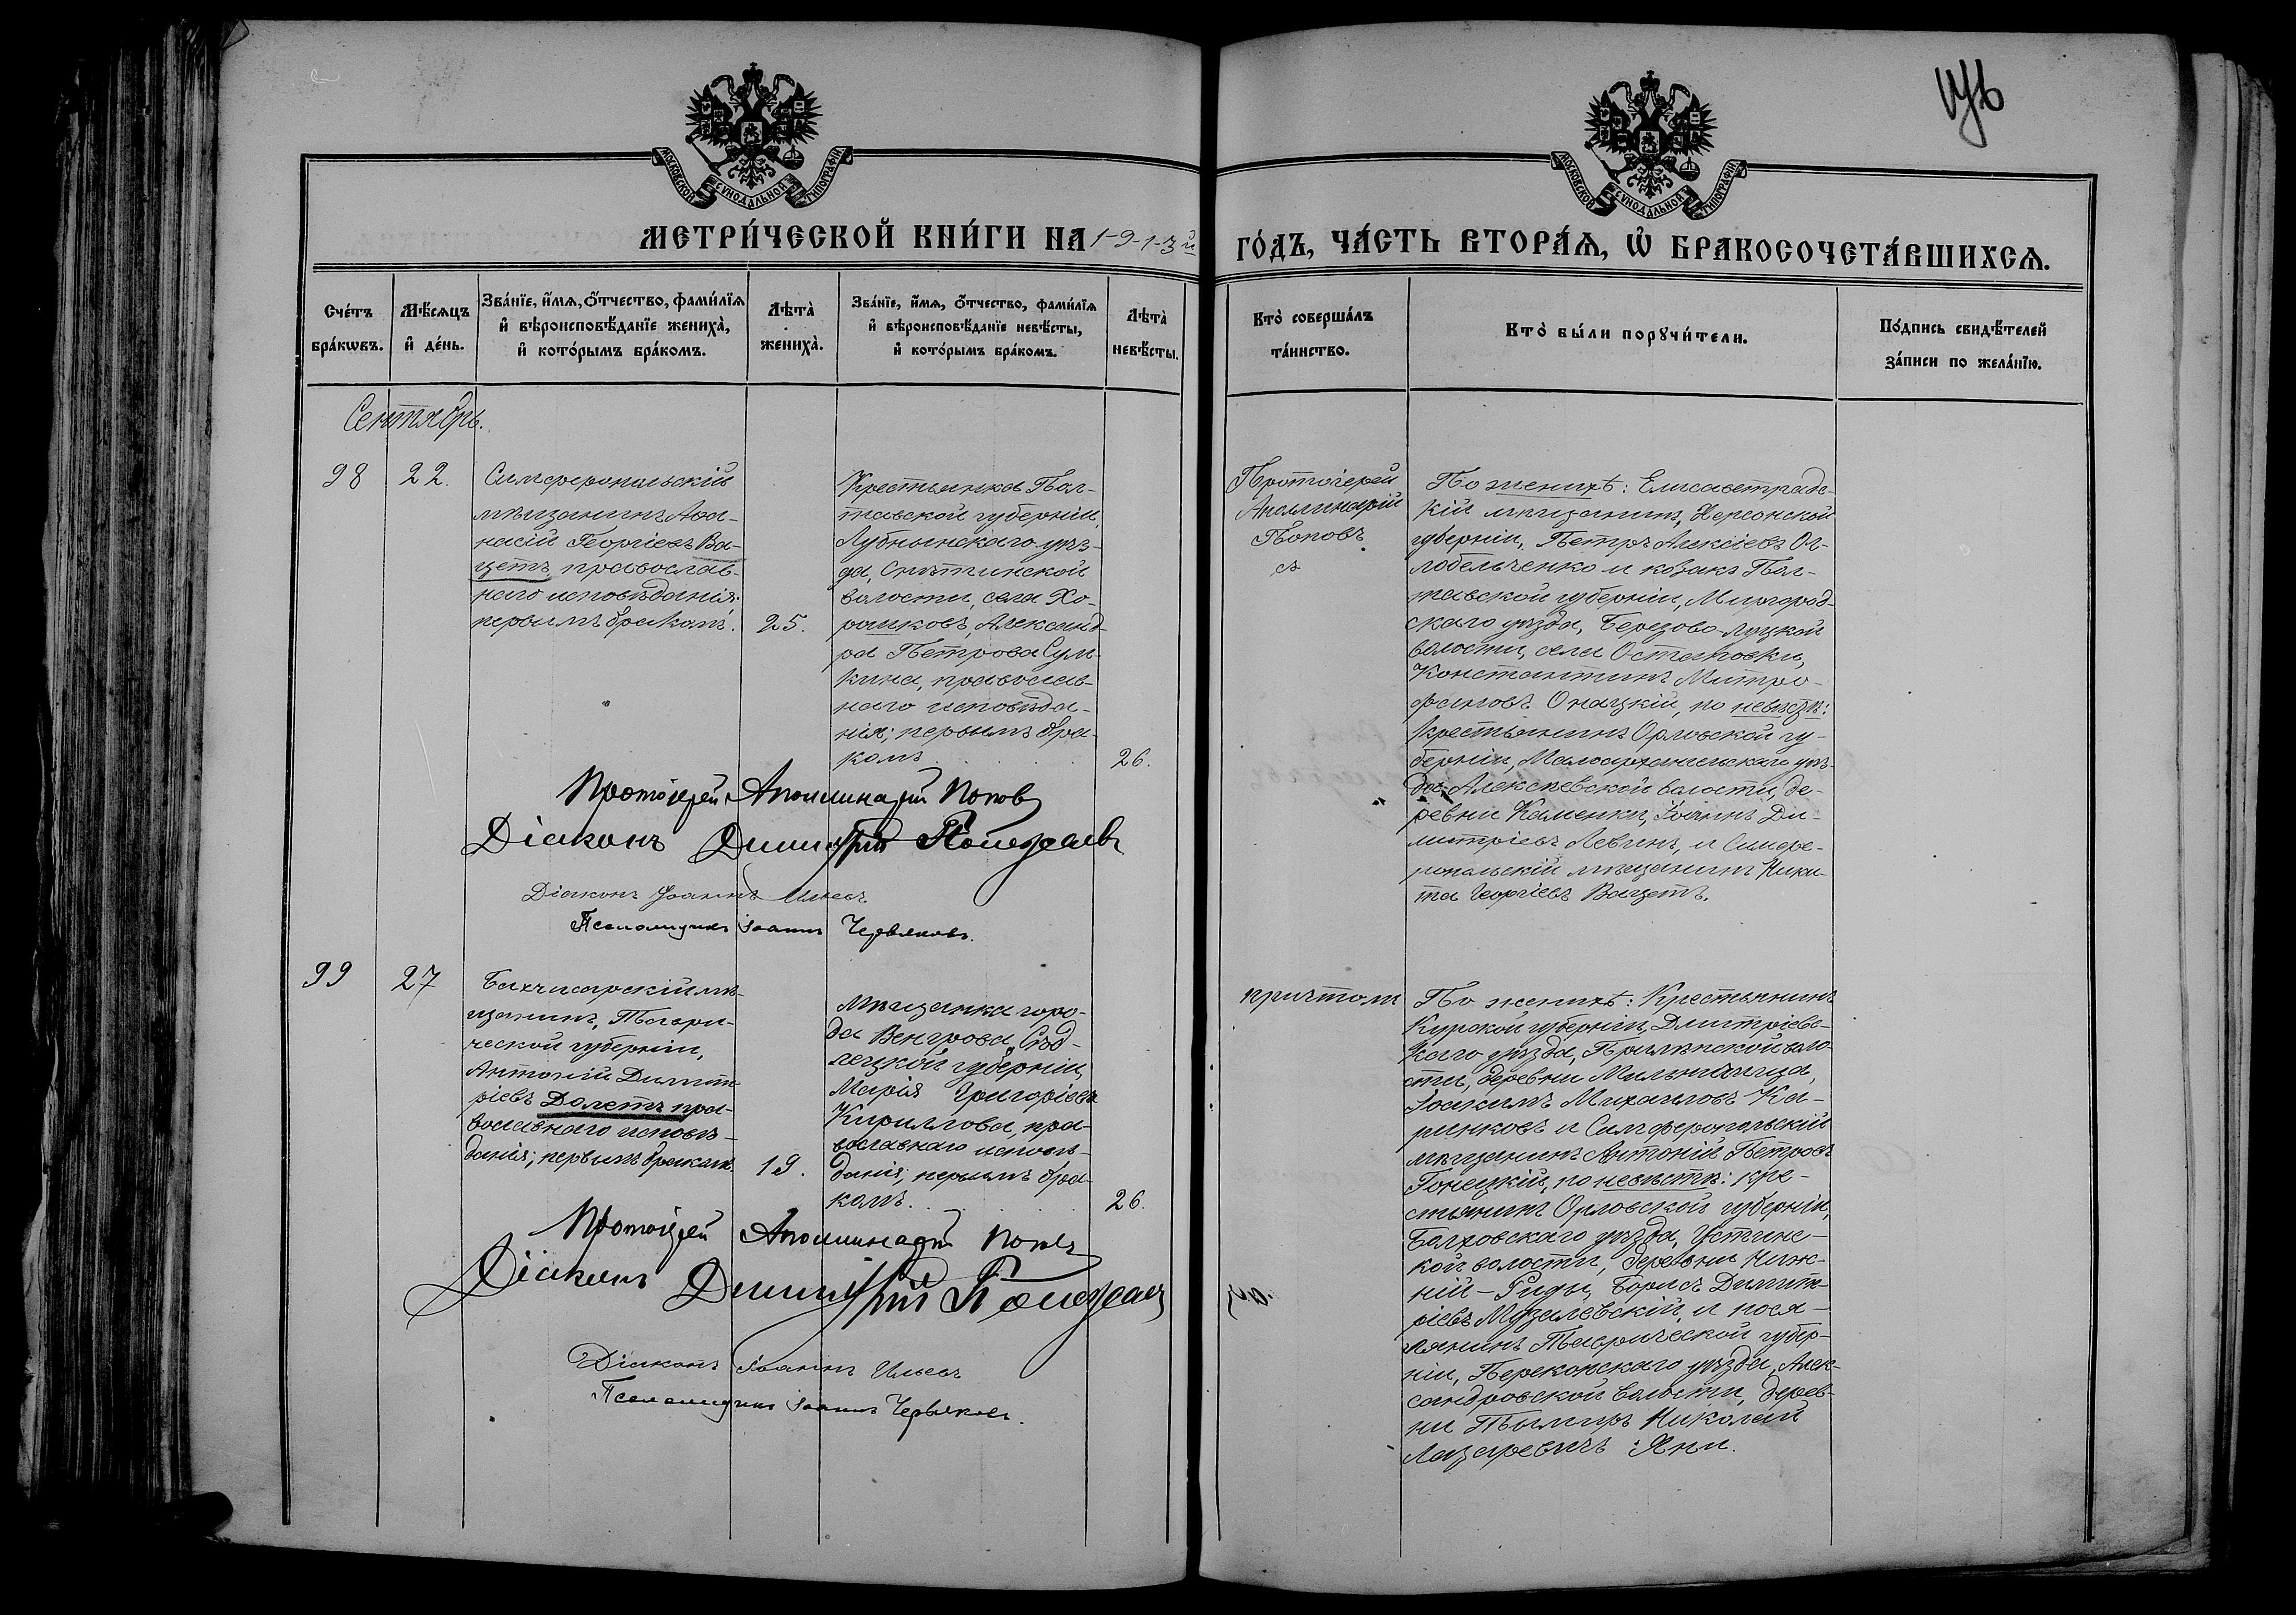 МОСКОВСКОЙ СѴНОДАЛЬНОЙ ТИПОГРАФІИ
МОСКОВСКОЙ СѴНОДАЛЬНОЙ ТИПОГРАФІИ
МЕТРИ́ЧЕСКОЙ КНИ́ГИ НА 1913й ГО́ДЪ, ЧА́СТЬ ВТОРА́Ѧ, Ѡ҆ БРАКОСОЧЕТА́ВШИХСѦ.
Сче́тъ бра́кѡвъ.
Мѣ́сѧцъ и҆ де́нь.
Зва́нїе, и҆́мѧ, ѻ҆́тчество, фами́лїѧ
и҆ вѣроисповѣ́данїе жениха̀,
и҆ кото́рымъ бра́комъ.
Лѣта̀ жениха̀.
Зва́нїе, и҆́мѧ, ѻ҆́тчество, фами́лїѧ
и҆ вѣроисповѣ́данїе невѣ́сты,
и҆ кото́рымъ бра́комъ.
Лѣта̀ невѣ́сты.
Кто̀ соверша́лъ
та́инство.
Кто̀ бы́ли порꙋчи́тели.
По́дпись свидѣ́телей
за́писи по жела́нїю.
Сентябрь.
98
22.
Симферопольскій
мѣщанинъ Аѳа-
насій Георгіевъ Ва-
цетъ, православ-
наго исповѣданія.
первымъ бракомъ.
25.
Крестьянка Пол-
тавской губерніи,
Лубнынскаго уѣз-
да, Снѣтинской
волости, села Хо-
рошковъ, Александ-
ра Петрова Сум-
кина, православ-
наго исповѣда-
нія; первымъ бра-
комъ
26.
Протоіерей
Аполлинарій
Поповъ
съ
По женихѣ: Елисаветградс-
кій мѣщанинъ, Херсонской
губерніи, Петръ Алексіевъ Ог-
лобельченко и козакъ Пол-
тавской губерніи, Миргород-
скаго уѣзда, Березово-Луцкой
волости, села Остаповки,
Константинъ Митро-
фановъ Онацкій, по невѣстѣ:
крестьянинъ Орловской гу-
берніи, Малоархангельскаго уѣз-
да, Алексѣевской волости, де-
ревни Каменки, Іоаннъ Ди-
митріевъ Левинъ, и Симфе-
ропольскій мѣщанинъ Ники-
та Георгіевъ Вацетъ.
Протоіерей Аполлинарій Поповъ
Діаконъ Димитрій
Діаконъ Іоаннъ Ильевъ
Псаломщикъ Іоаннъ Червяковъ.
99
27
Бахчисарскій мѣ-
щанинъ, Таври-
ческой губерніи,
Антоній Димит-
ріевъ Долетъ пра-
вославнаго исповѣ-
данія; первымъ бракомъ.
19.
Мѣщанка горо-
да Венгрова, Сѣд-
лецкой губерніи,
Марія Григорієва
Кириллова, пра-
вославнаго исповѣ-
данія; первымъ бра-
комъ.
26.
причтомъ
По женихѣ: Крестьянинъ
Курской губерніи, Дмитріевс-
каго уѣзда, Прилѣпской воло-
сти, деревни
Іоакимъ Михаиловъ Ка-
ринковъ и Симферопольскій
мѣщанинъ Антоній Петровъ
Гонецкій, по невѣстѣ: кре-
стьянинъ Орловской губерніи,
Болховскаго уѣзда,
кой волости, деревни Ниж-
ній-Риды, Борисъ Димит-
ріевъ Музалевскій, и посе-
лянинъ Таврической губер-
ніи, Перекопскаго уѣзда, Алек-
сандровской волости, дерев-
ни Николай
Лазаревичъ Яни.
Протоіерей Аполлинарій Поповъ
Діаконъ Димитрій
Діаконъ Іоаннъ Ильевъ
Псаломщикъ Іоаннъ Червяковъ.